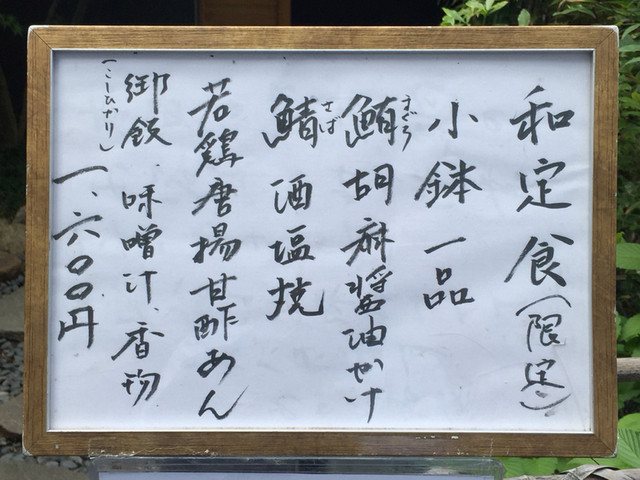 和定食(限定)
小鉢一品
鮪胡麻醤油かけ
まぐろ
鯖酒塩焼
さば
若鶏唐揚甘酢あん
御飯、味噌汁、香物
(こしひかり)
一、六〇〇円